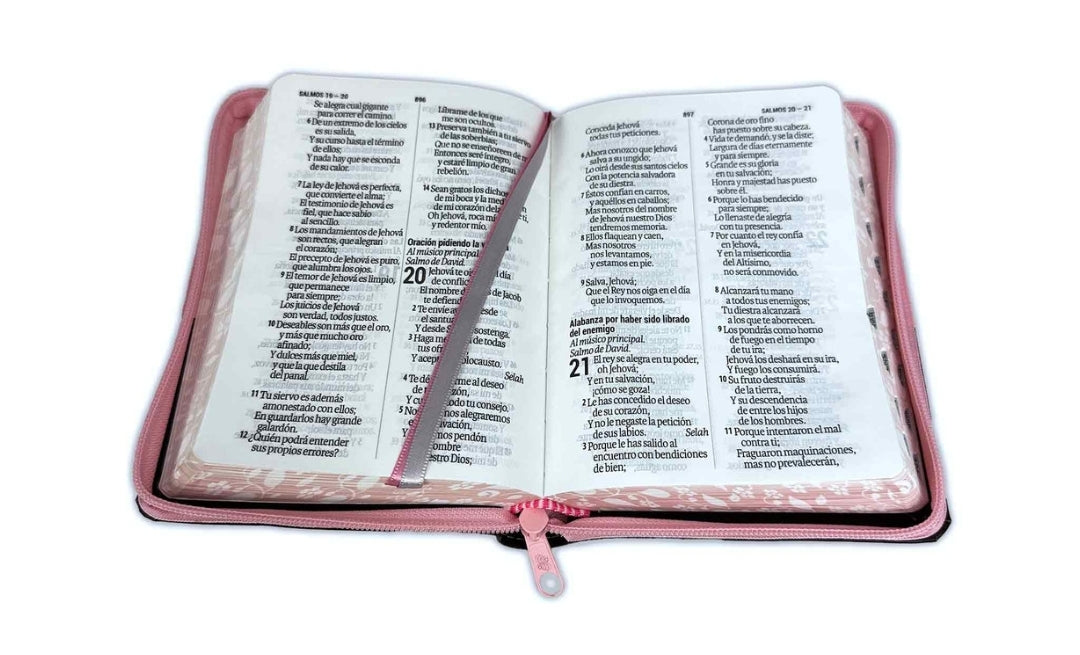 SALMOS 19 – 20
896
Se alegra cual gigante
para correr el camino.
6 De un extremo de los cielos
es su salida,
Y su curso hasta el término
de ellos;
Y nada hay que se esconda
de su calor.
7 La ley de Jehová es perfecta,
que convierte el alma;
El testimonio de Jehová es
fiel, que hace sabio
al sencillo.
8 Los mandamientos de Jehová
son rectos, que alegran
el corazón;
El precepto de Jehová es puro,
que alumbra los ojos.
9 El temor de Jehová es limpio,
que permanece
para siempre;
Los juicios de Jehová
son verdad, todos justos.
10 Deseables son más que el oro,
y más que mucho oro
afinado;
Y dulces más que miel,
y que la que destila
del panal.
11 Tu siervo es además
amonestado con ellos;
En guardarlos hay grande
galardón.
12 ¿Quién podrá entender
sus propios errores?
Líbrame de los que
me son ocultos.
13 Preserva también a tu siervo
de las soberbias;
Que no se enseñoreen de
Entonces seré íntegro,
y estaré limpio de gran
rebelión.
14 Sean gratos los dichos
de mi boca y la
de mi corazón
Oh Jehová, roca
y redentor mío.
Oración pidiendo la
Al músico principal.
Salmo de David.
20 Jehová te día
de
El nombre de Jacob
te
2 Te envíe desde
el
Y desde sostenga.
3 Haga de todas
tus
Y holocausto. Selah
4 Te dé al deseo
de
Y tu consejo.
5 nos alegraremos
pendón
Dios;
897
SALMOS 20 – 21
Conceda Jehová
todas tus peticiones.
6 Ahora conozco que Jehová
salva a su ungido;
Lo oirá desde sus santos cielos
Con la potencia salvadora
de su diestra.
7 Estos confían en carros,
y aquéllos en caballos;
Mas nosotros del nombre
de Jehová nuestro Dios
tendremos memoria.
8 Ellos flaquean y caen,
Mas nosotros
nos levantamos,
y estamos en pie.
9 Salva, Jehová;
Que el Rey nos oiga en el día
que lo invoquemos.
Alabanza por haber sido librado
del enemigo
Al músico principal.
Salmo de David.
21 El rey se alegra en tu poder,
oh Jehová;
Y en tu salvación,
¡cómo se goza!
2 Le has concedido el deseo
de su corazón,
Y no le negaste la petición
de sus labios. Selah
3 Porque le has salido al
encuentro con bendiciones
de bien;
Corona de oro fino
has puesto sobre su cabeza.
4 Vida te demandó, y se la diste;
Largura de días eternamente
y para siempre.
5 Grande es su gloria
en tu salvación;
Honra y majestad has puesto
sobre él.
6 Porque lo has bendecido
para siempre;
Lo llenaste de alegría
con tu presencia.
7 Por cuanto el rey confía
en Jehová,
Y en la misericordia
del Altísimo,
no será conmovido.
8 Alcanzará tu mano
a todos tus enemigos;
Tu diestra alcanzará
a los que te aborrecen.
9 Los pondrás como horno
de fuego en el tiempo
de tu ira;
Jehová los deshará en su ira,
Y fuego los consumirá.
10 Su fruto destruirás
de la tierra,
Y su descendencia
de entre los hijos
de los hombres.
11 Porque intentaron el mal
contra ti;
Fraguaron maquinaciones,
mas no prevalecerán,